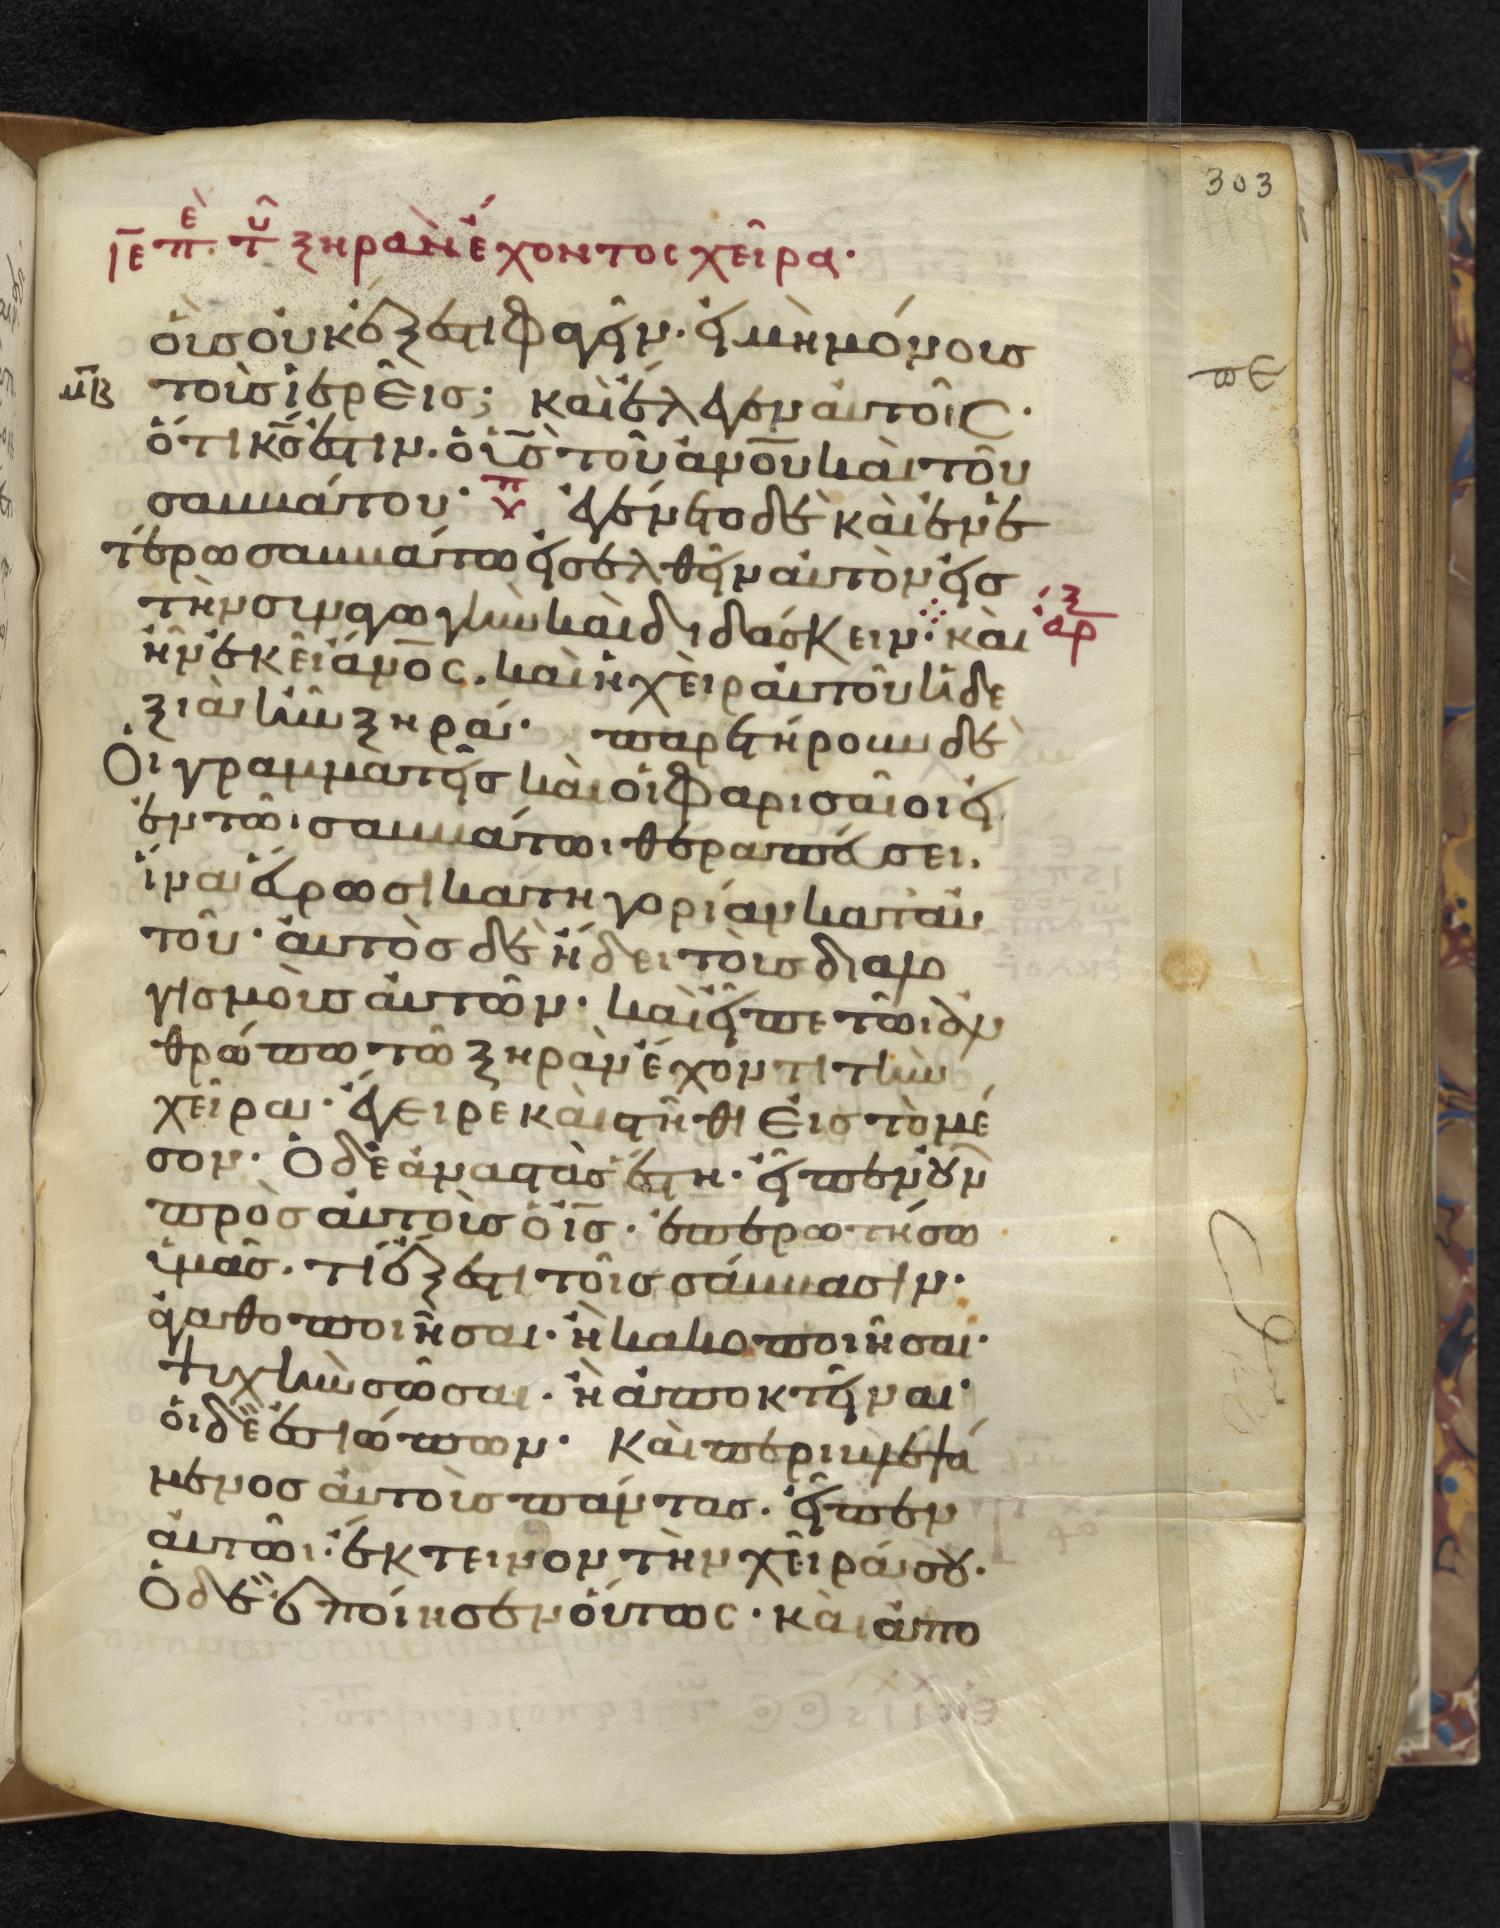 303
ιε πε τυ ξηρὰν ἔχοντος χεῖρα·
οὓς οὐκ ἔξεστι φαγεῖν· εἰ μὴ μόνους
πε
μβ τοὺς ἱερεῖς; καὶ ἔλεγεν αὐτοῖς·
ὅτι κς ἐστιν· ὁ υς τοῦ ανου καὶ τοῦ
σαββάτου· ἐγένετο δὲ καὶ ἐν ἑ
τέρω σαββάτω εἰσελθεῖν αὐτὸν εἰς
τὴν συναγωγὴν καὶ διδάσκειν· καὶ αρξ
ἦν ἐκεῖ ανος· καὶ ἡ χεὶρ αὐτοῦ ἡ δε
ξιὰ ἦν ξηρά· παρετήρουν δὲ
Οἱ γραμματεῖς καὶ οἱ Φαρισαῖοι εἰ
ἐν τῶι σαββάτωι θεραπεύσει·
ἵνα εὕρωσι κατηγορίαν κατ αὐ
τοῦ· αὐτὸς δὲ ἤδει τοὺς διαλο
γισμοὺς αὐτῶν· καὶ εἶπε τῶι ἀν
θρώπω τῶ ξηρὰν ἔχοντι τὴν
χεῖρα· ἔγειρε καὶ στῆθι εἰς τὸ μέ
σον· Ὁ δὲ ἀναστὰς ἔστη· εἶπεν οὖν
πρὸς αὐτοὺς ὁ ις· ἐπερωτήσω
ὑμᾶς· τί ἔξεστι τοῖς σάββασιν·
ἀγαθοποιῆσαι· ἢ κακοποιῆσαι·
ψυχὴν σῶσαι· ἢ ἀποκτεῖναι·
οἱ δὲ ἐσιώπων· Καὶ περιβλεψά
μενος αὐτοὺς πάντας· εἶπεν
αὐτῶι· ἔκτεινον τὴν χεῖρά σου·
Ὁ δὲ ἐποίησεν οὕτως· καὶ ἀπο